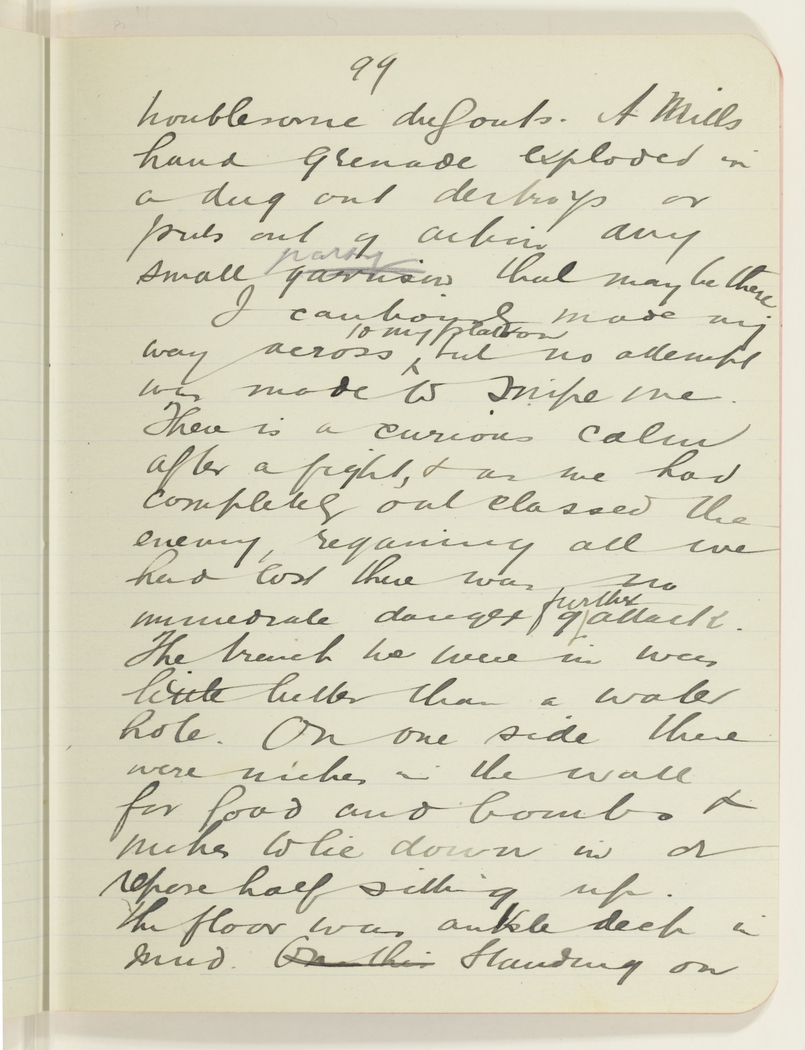 99
troublesome dugouts. A Mills
hand Grenade exploded in
a dug out destroys or
puts out of action any
party
small garrison that may be there
I cautiously made my
to my platoon
way across, but no attempt
was made to snipe me.
There is a curious calm
after a fight, & as we had
completely out classed the
enemy, regaining all we
had lost there was no
further
immediate danger of attack.
The trench we were in was
little better than a water
hole. On one side there
were niches in the wall
for food and bombs &
niches to lie down in or
repose half sitting up.
The floor was ankle deep in
mud. On this Standing on